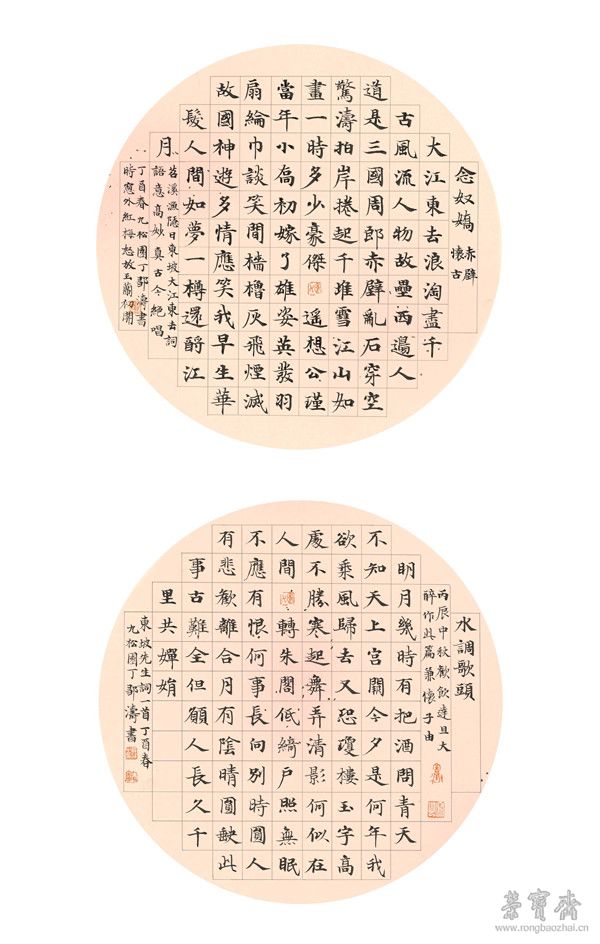 念奴嬌 赤壁懷古
大江東去浪淘盡千
古風流人物故壘西邊人
道是三國周郎赤壁亂石穿空
驚濤拍岸捲起千堆雪江山如
畫一時多少豪傑 遙想公瑾
當年小喬初嫁了雄姿英發羽
扇綸巾談笑間檣櫓灰飛煙滅
故國神遊多情應笑我早生華
髮人間如夢一樽還酹江
月
苕溪漁隱曰東坡大江東去詞
語意高妙真古今絕唱
丁酉春九松園丁鄒濤書
時窓外紅梅怒放玉蘭初開
水調歌頭
丙辰中秋歡飲達旦大
醉作此篇兼懷子由
明月幾時有把酒問青天
不知天上宮闕今夕是何年我
欲乘風歸去又恐瓊樓玉宇高
處不勝寒起舞弄清影何似在
人間 轉朱閣低綺戶照無眠
不應有恨何事長向別時圓人
有悲歡離合月有陰晴圓缺此
事古難全但願人長久千
里共嬋娟
東坡先生詞一首丁酉春
九松園丁鄒濤書
榮寶齋
www.rongbaozhai.cn